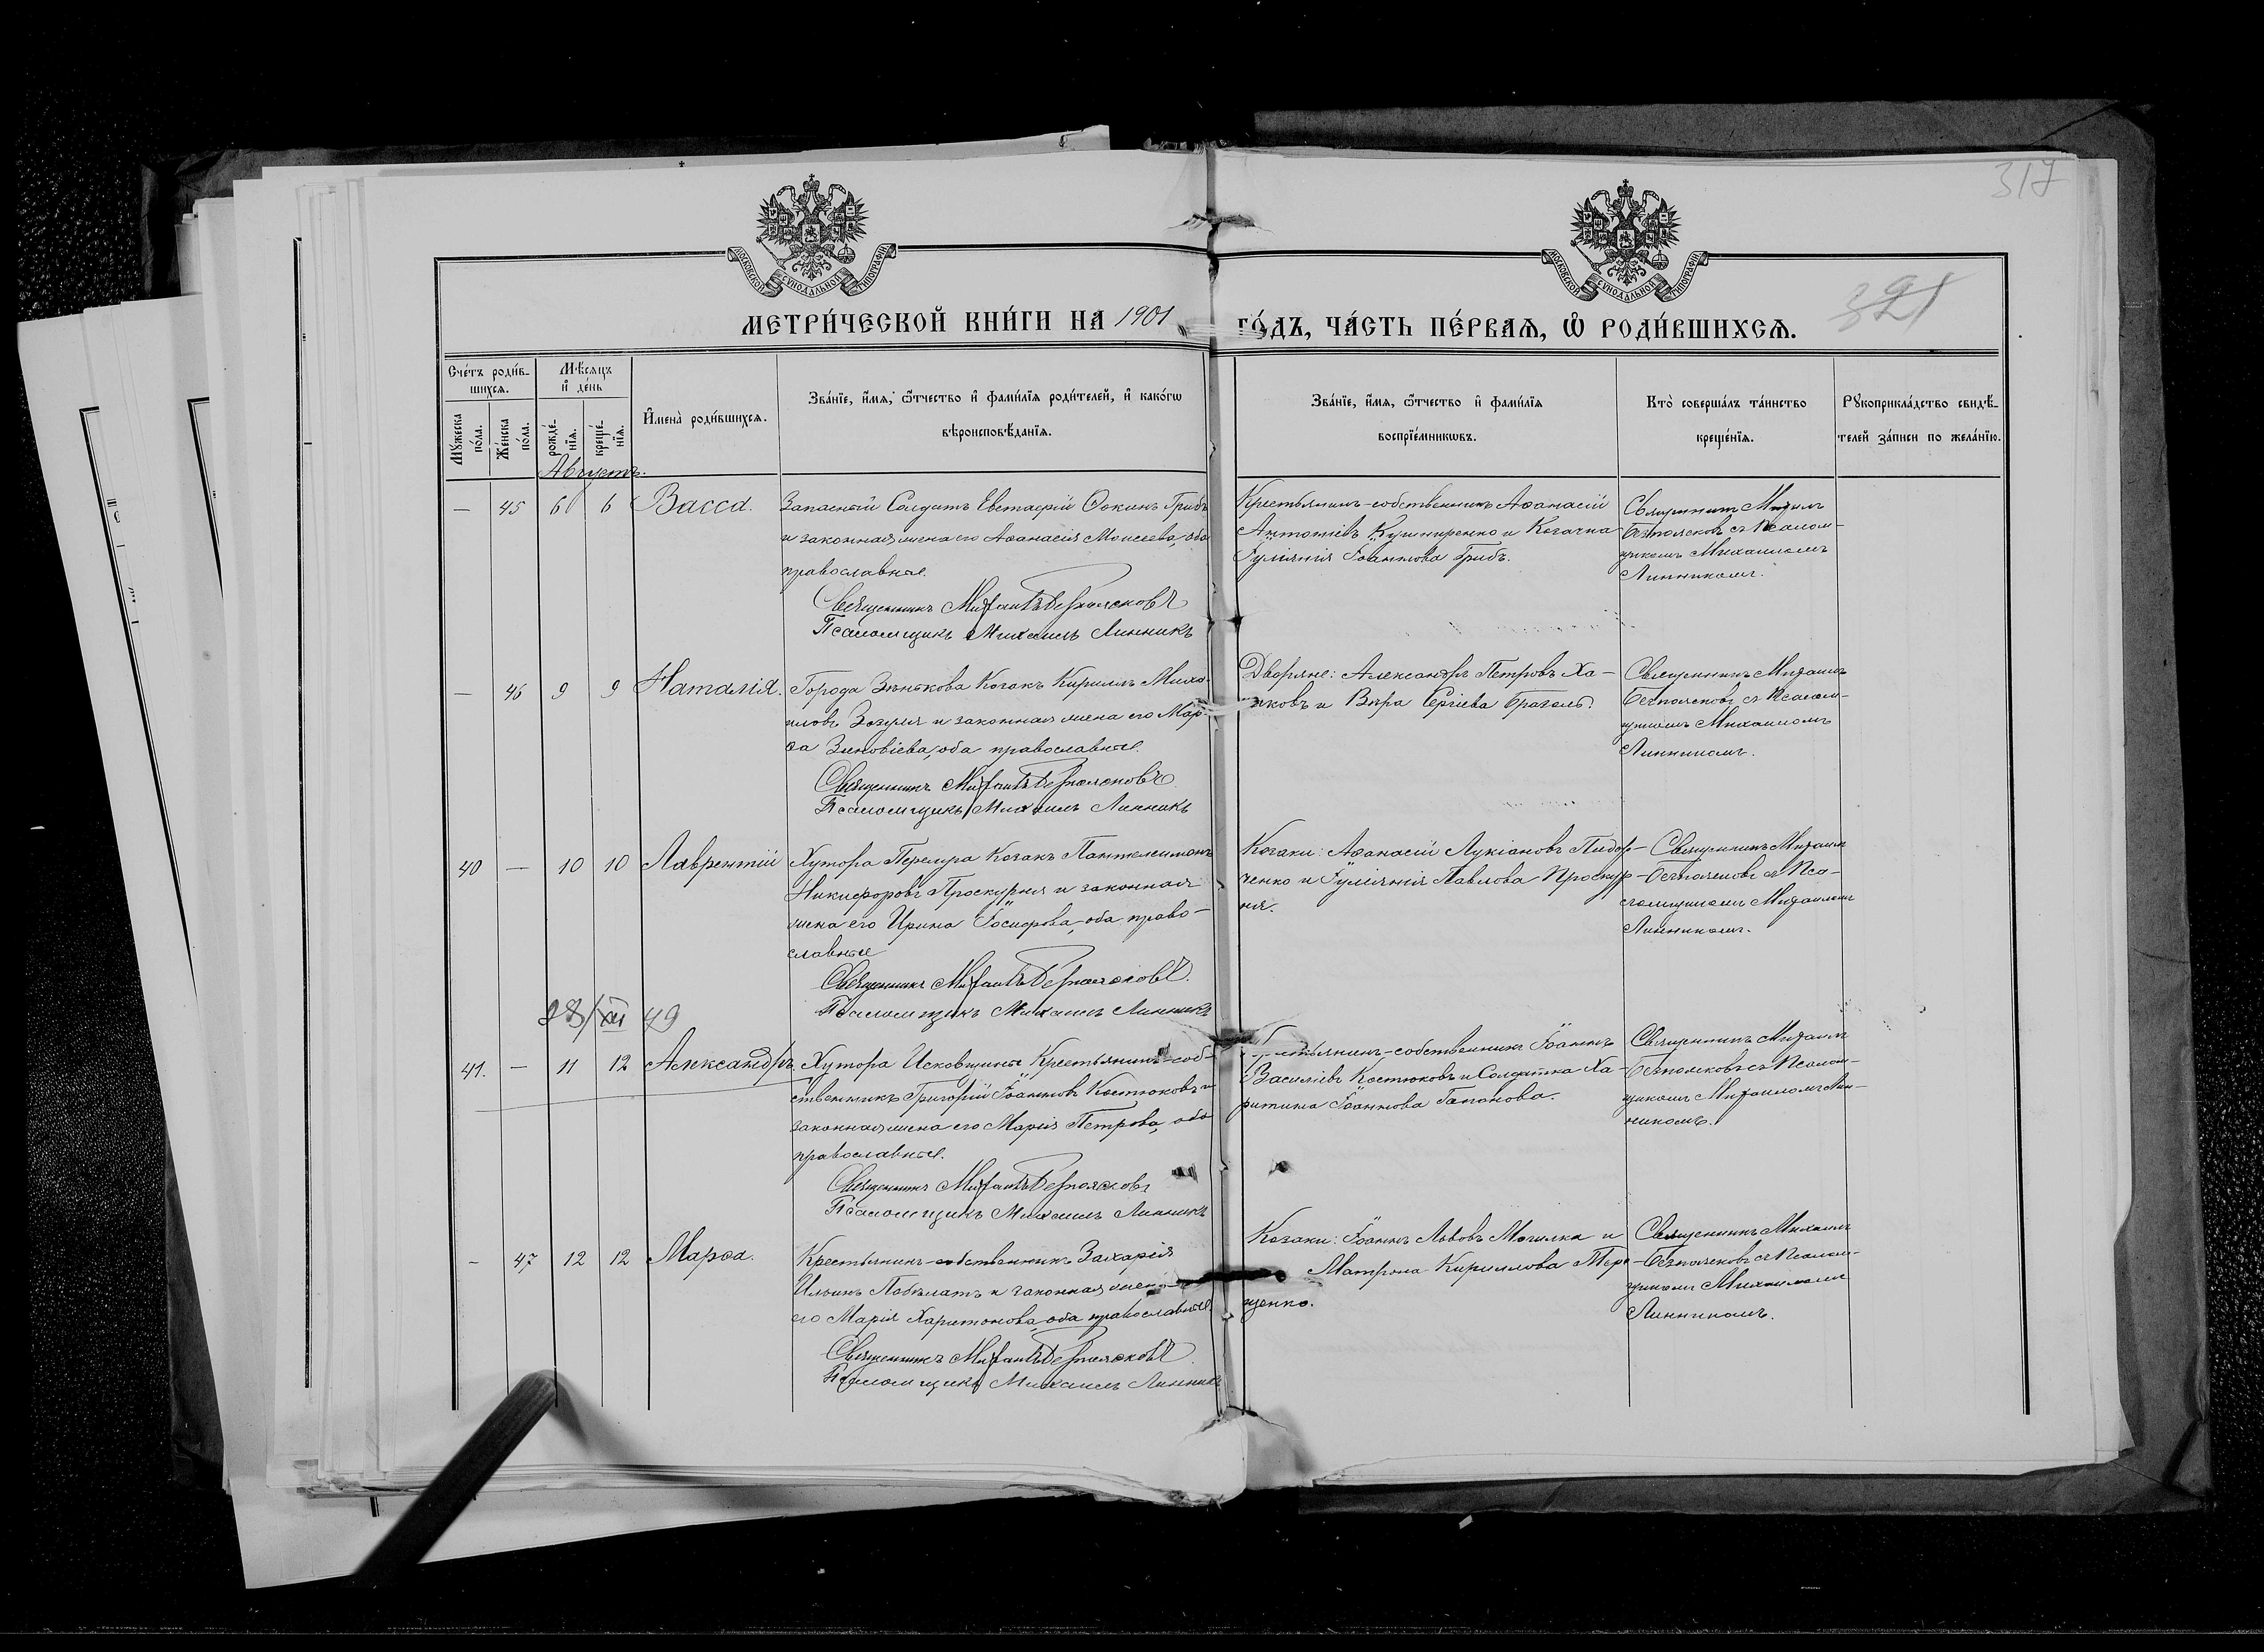 317
МОСКОВСКОЙ СУНОДАЛЬНОЙ ТИПОГРАФІИ
МОСКОВСКОЙ СУНОДАЛЬНОЙ ТИПОГРАФІИ
321
МЕТРИ́ЧЕСКОЙ КНИ́ГИ НА 1901 ГО́ДЪ, ЧА́СТЬ ПЕ́РВАѦ, Ѽ РОДИ́ВШИХСѦ.
Сче́тъ роди́в-
шихсѧ.
Мꙋжеска по́ла.
Же́нска по́ла.
Мѣ́сѧцъ
и҆ де́нь
рожде́-
нїѧ.
креще́-
нїѧ.
И҆мена̀ роди́вшихсѧ.
Зва́нїе, и҆́мѧ, ѻ҆́тчество и҆ фами́лїѧ роди́телей, и҆ како́гѡ
вѣроисповѣ́данїѧ.
Зва́нїе, и҆́мѧ, ѻ҆́тчество и҆ фами́лїѧ
воспрїе́мникѡвъ.
Кто̀ соверша́лъ та́инство
креще́нїѧ.
Рꙋкоприкла́дство свидѣ́-
телей за́писи по жела́нїю.
Августъ.
— 45 6 6 Васса.
Запасный Солдатъ Евстафій Ѳокинъ Грибъ
и законная жена его Аѳанасія Моисеева, оба
православные.
Священникъ Михаилъ Безпоясковъ
Псаломщикъ Михаилъ Линникъ
Крестьянинъ-собственникъ Аѳанасій
Антоніевъ Кушниренко и Козачка
Іуліанія Іоаннова Грибъ.
Священникъ Михаилъ
Безпоясковъ съ Псалом-
щикомъ Михаиломъ
Линникомъ.
— 46 9 9 Наталія.
Города Зѣнькова Козакъ Кириллъ Миха-
иловъ Зозуля и законная жена его Мар-
ѳа Зиновіева, оба православные.
Священникъ Михаилъ Безпоясковъ
Псаломщикъ Михаилъ Линникъ
Дворяне: Александръ Петровъ Ха-
ковъ и Вѣра Сергіева
Священникъ Михаилъ
Безпоясковъ съ Псалом-
щикомъ Михаиломъ
Линникомъ.
40 — 10 10 Лаврентій
Хутора Перелура Козакъ Пантелеимонъ
Никифоровъ Проскурня и законная
жена его Ирина Іосифова, оба право-
славные
Священникъ Михаилъ Безпоясковъ.
Псаломщикъ Михаилъ Линникъ
Козаки: Аѳанасій Лукіановъ
ченко и Іуліанія Павлова Проскур-
ня.
Священникъ Михаилъ
Безпоясковъ съ Пса-
ломщикомъ Михаиломъ
Линникомъ.
28/XII 49
41. — 11 12 Александръ.
Хутора Исковщины Крестьянинъ-соб-
ственникъ Григорій Іоанновъ Костюковъ и
законная жена его Марія Петрова, оба
православные.
Священникъ Михаилъ Безпоясковъ
Псаломщикъ Михаилъ Линникъ
Крестьянинъ-собственникъ Іоаннъ
Василіевъ Костюковъ и Солдатка Ха-
ритина Іоаннова Гапонова.
Священникъ Михаилъ
Безпоясковъ съ Псалом-
щикомъ Михаиломъ Лин-
никомъ.
- 47 12 12 Марѳа.
Крестьянинъ-собственникъ Захарія
Ильинъ и законная жена
его Марія Харитонова, оба православные.
Священникъ Михаилъ Безпоясковъ
Псаломщикъ Михаилъ Линникъ
Козаки: Іоаннъ Львовъ Могилка и
Матрона Кириллова Тере-
щенко.
Священникъ Михаилъ
Безпоясковъ съ Псалом-
щикомъ Михаиломъ
Линникомъ.